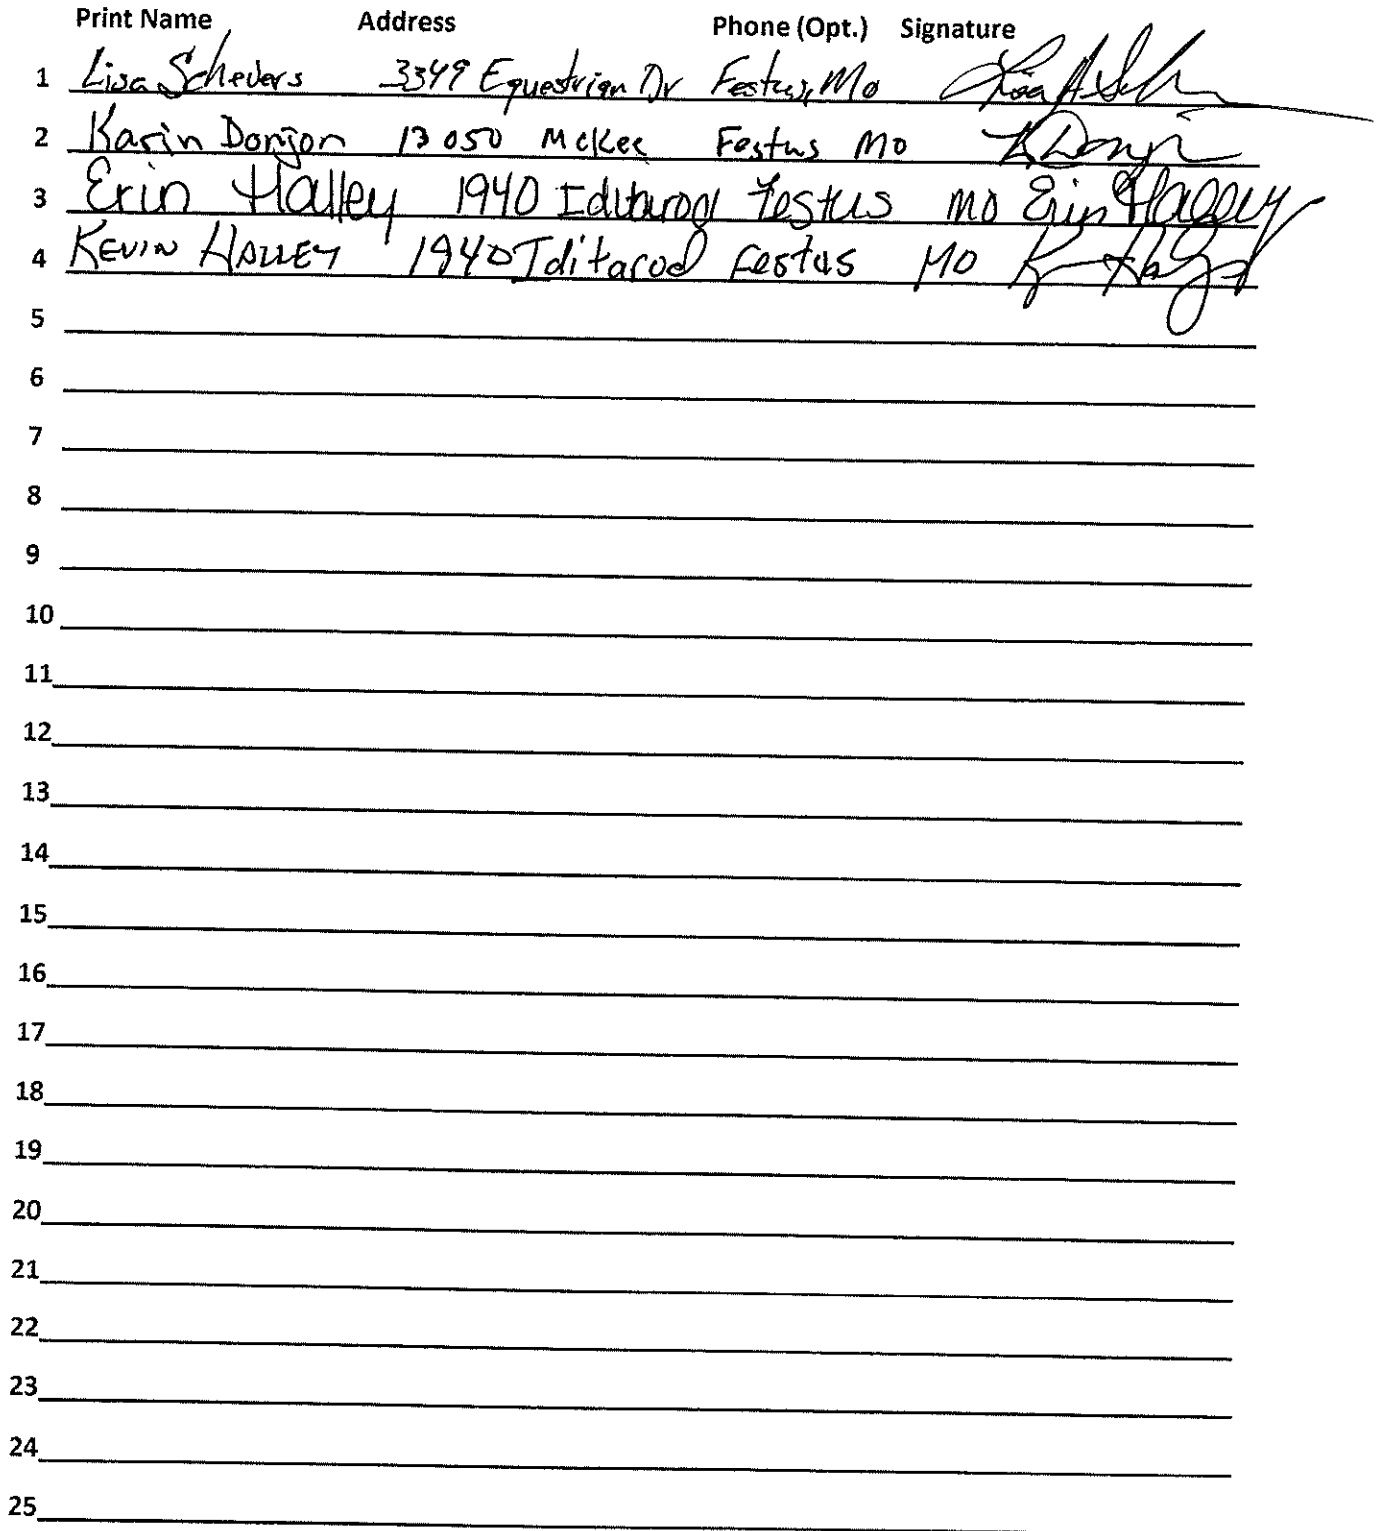 Print Name Address Phone (Opt.) Signature
1 Lisa Schevers 3349 Equestrian Dr Festus, Mo Lisa A Sch
2 Karin Donjon 13050 McKee Festus Mo K Donjon
3 Erin Halley 1940 Iditarod Festus MO Erin Halley
4 KEVIN HALLEY 1940 Iditarod Festus MO
5
6
7
8
9
10
11
12
13
14
15
16
17
18
19
20
21
22
23
24
25